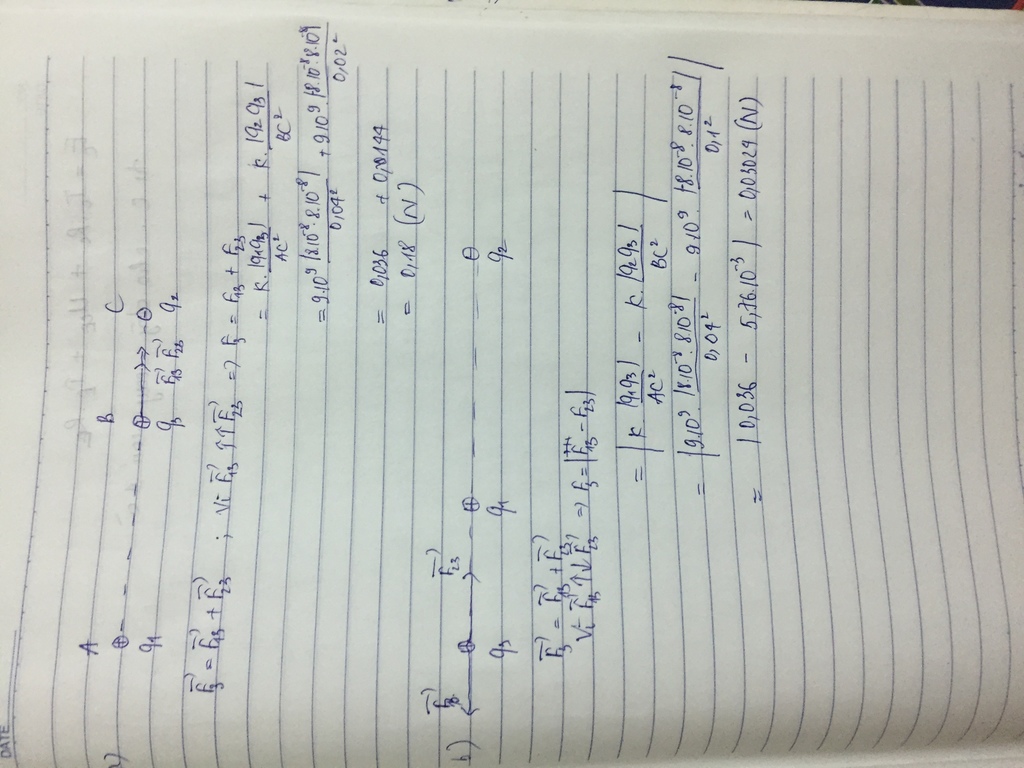 DATE
a)
A B C
q₁ q₃ F₁₃ F₂₃ q₂
F₃ = F₁₃ + F₂₃ ; Vì F₁₃ ↑↑ F₂₃ => F₃ = F₁₃ + F₂₃
= K. |q₁q₃| / AC² + K. |q₂q₃| / BC²
= 9.10⁹ |8.10⁻⁸.8.10⁻⁸| / 0,04² + 9.10⁹. |-8.10⁻⁸.8.10⁻⁸| / 0,02²
= 0,036 + 0,0144
= 0,18 (N)
b)
F₂₃
q₃ q₁ q₂
F₃ = F₁₃ + F₂₃
Vì F₁₃ ↑↓ F₂₃ => F₃ = |F₁₃ - F₂₃|
= | K. |q₁q₃| / AC² - K. |q₂q₃| / BC² |
= | 9.10⁹. |8.10⁻⁸.8.10⁻⁸| / 0,04² - 9.10⁹. |-8.10⁻⁸.8.10⁻⁸| / 0,1² |
= | 0,036 - 5,76.10⁻³ | = 0,03024 (N)